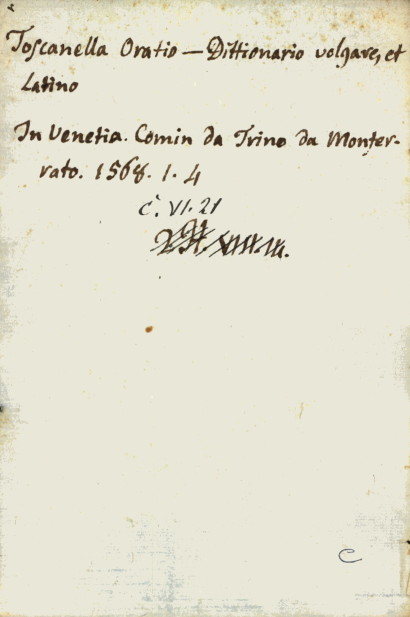 Toscanella Oratio — Dittionario volgare, et
Latino
In Venetia. Comin da Trino da Monfer-
rato. 1568. 1. 4
c. VI. 21
C